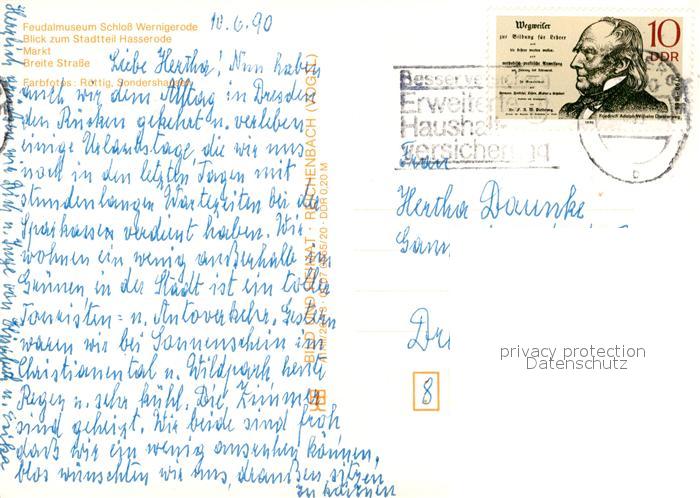 Feudalmuseum Schloß Wernigerode
Blick zum Stadtteil Hasserode
Markt
Breite Straße
Farbfotos: Röttig, Sondershausen
10.6.90
Liebe Hertha! Nun haben
auch wir dem Alltag in Dresden
den Rücken gekehrt u. verleben
einige Urlaubstage, die wir uns
noch in den letzten Tagen mit
stundenlangen Wartezeiten bei der
Sparkasse verdient haben. Wir
wohnen ein wenig außerhalb im
Grünen in der Stadt ist ein toller
Touristen- u. Autoverkehr. Gestern
waren wir bei Sonnenschein im
Christianental u. Wildpark heute
Regen u. sehr kühl. Die Zimmer
sind geheizt. Wir beide sind froh
daß wir ein wenig ausruhen können,
blos wünschten wir uns, draußen sitzen
zu können
Herzlich
BILD UND HEIMAT · REICHENBACH (VOGTL)
DDR 0,20 M
Wegweiser
zur Bildung für Lehrer
10
DDR
Friedrich Adolph Wilhelm Diesterweg
1990
Besser
Erweiterte
Haushalt
versicherung
Frau
Hertha Daunke
Dr
8
privacy protection
Datenschutz